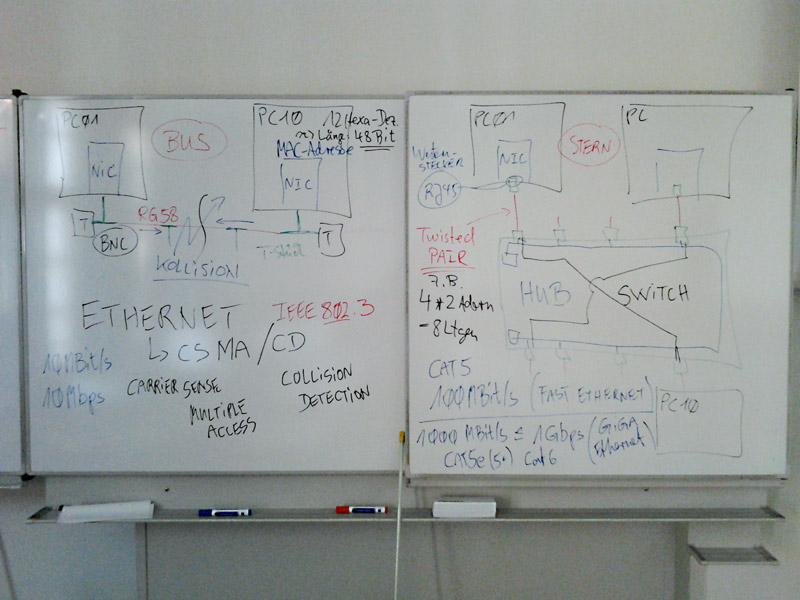 PC01
BUS
PC10
12 Hexa-Dez.
=> Länge: 48 Bit
MAC-Adresse
NIC
NIC
T
BNC
RG58
T-Stück
T
KOLLISION
ETHERNET
IEEE 802.3
↳ CSMA/CD
10MBit/s
10Mbps
CARRIER SENSE
MULTIPLE
ACCESS
COLLISION
DETECTION
PC01
STERN
PC
NIC
Western-
STECKER
RJ45
Twisted
PAIR
z.B.
4*2 Adern
-8 Ltgen
HUB
SWITCH
CAT5
100MBit/s (FAST ETHERNET)
1000 MBit/s ≤ 1Gbps (GIGA
Ethernet)
CAT5e(5+) Cat6
PC10